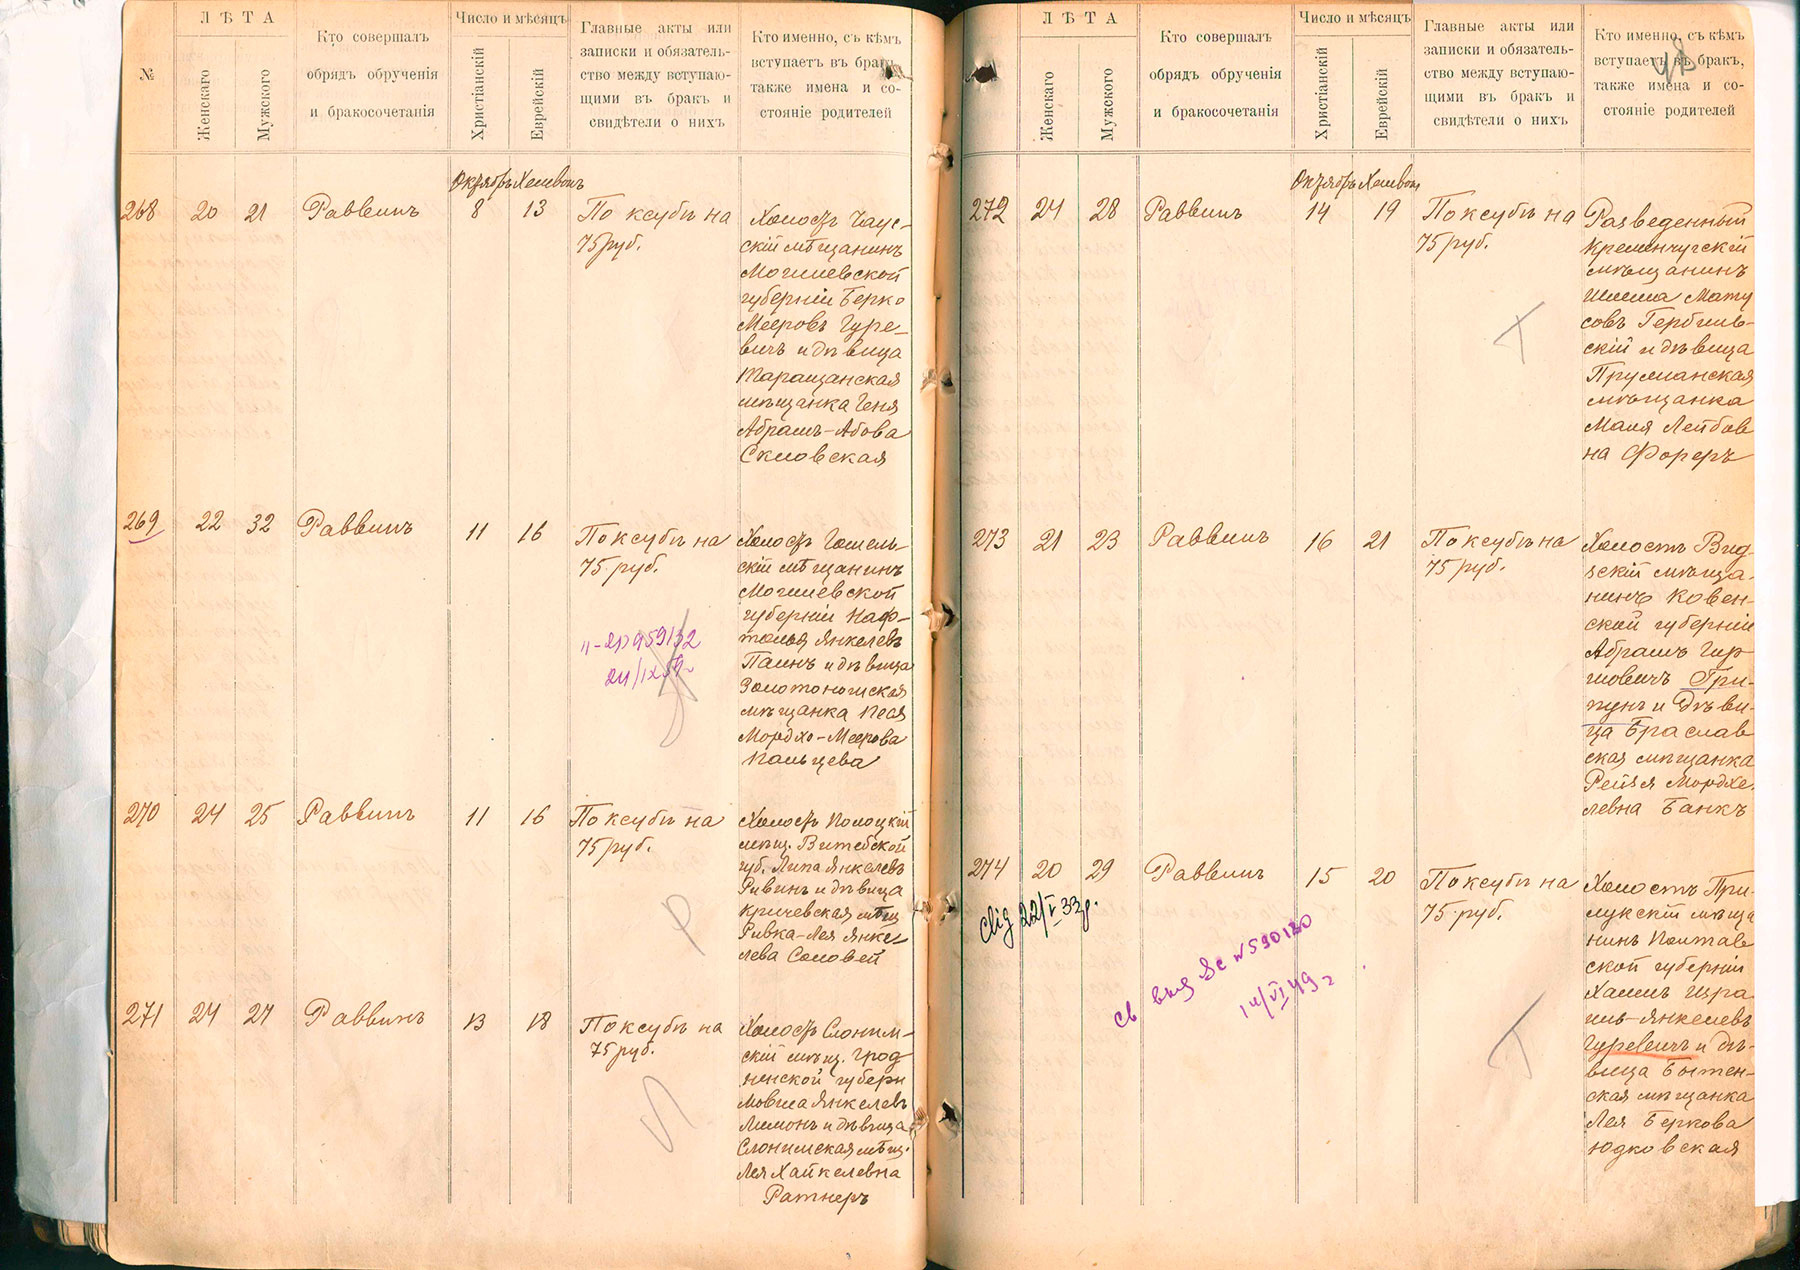 №
ЛѢТА
Женскаго
Мужского
Кто совершалъ
обрядъ обрученія
и бракосочетанія
Число и мѣсяцъ
Христіанскій
Еврейскій
Главные акты или
записки и обязатель-
ство между вступаю-
щими въ бракъ и
свидѣтели о нихъ
Кто именно, съ кѣмъ
вступаетъ въ бракъ,
также имена и со-
стояніе родителей
Октябрь Хешвонъ
268 20 21 Раввинъ 8 13 По ксубѣ на
75 руб.
Холостъ Чаус-
скій мѣщанинъ
Могилевской
губерніи Берко
Мееровъ Гуре-
вичъ и дѣвица
Таращанская
мѣщанка Геня
Абрамъ-Абова
Скловская
269 22 32 Раввинъ 11 16 По ксубѣ на
75 руб.
959132
24/IX 59г
Холостъ Гомель-
скій мѣщанинъ
Могилевской
губерніи Наф-
толья Янкелевъ
Паинъ и дѣвица
Золотоношская
мѣщанка Песя
Мордхо-Меерова
Пальцева
270 24 25 Раввинъ 11 16 По ксубѣ на
75 руб.
Холостъ Полоцкій
мѣщ. Витебской
губ. Липа Янкелевъ
Ривинъ и дѣвица
Кричевская мѣщ
Ривка-Лея Янке
лева Соловей
271 24 27 Раввинъ 13 18 По ксубѣ на
75 руб.
Холостъ Слоним-
скій мѣщ. Грод
ненской губерн
Мовша Янкелевъ
Лимонъ и дѣвица
Слонимская мѣщ.
Лея Хайкелевна
Ратнеръ
ЛѢТА
Женскаго
Мужского
Кто совершалъ
обрядъ обрученія
и бракосочетанія
Число и мѣсяцъ
Христіанскій
Еврейскій
Главные акты или
записки и обязатель-
ство между вступаю-
щими въ бракъ и
свидѣтели о нихъ
Кто именно, съ кѣмъ
вступаетъ въ бракъ,
также имена и со-
стояніе родителей
Октябрь Хешвонъ
272 24 28 Раввинъ 14 19 По ксубѣ на
75 руб.
Разведенный
Кременчугскій
мѣщанинъ
Шлема Мату
совъ Гербиль-
скій и дѣвица
Пружанская
мѣщанка
Маля Лейбов
на Фореръ
273 21 23 Раввинъ 16 21 По ксубѣ на
75 руб.
Холостъ Вид-
зскій мѣща-
нинъ Ковен-
ской губерніи
Абрамъ Гир
шовичъ Гри-
пунъ и дѣви-
ца Браслав
ская мѣщанка
Рейзя Мордхе-
левна Банкъ
274 20 29 Раввинъ 15 20 По ксубѣ на
75 руб.
22/V 33р.
св выд ВС №590120
14/VI 49 г
Холостъ При-
лукскій мѣща
нинъ Полтав
ской губерніи
Хаимъ Изра
иль-Янкелевъ
Гуревичъ и дѣ-
вица Бытен-
ская мѣщанка
Лея Беркова
Юдковская